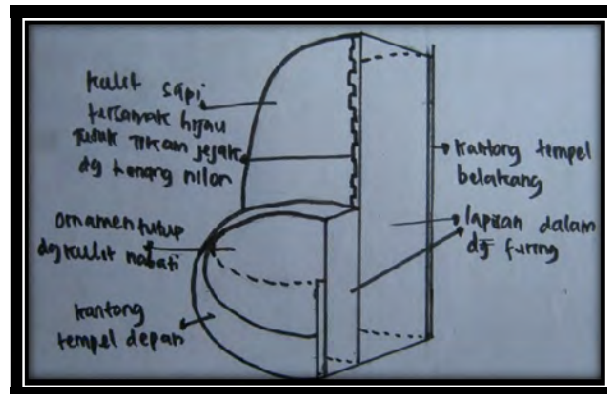 kulit sapi
tersamak hijau
tusuk tikam jejak
dg benang nilon
Ornamen tutup
dg kulit nabati
kantong
tempel depan
kantong tempel
belakang
lapisan dalam
dg furing